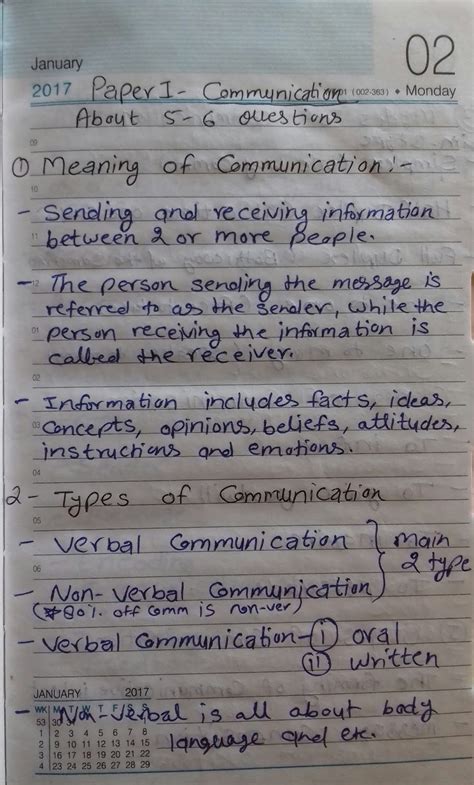 02
January
2017 Paper I - Communication (002-363) • Monday
About 5-6 Questions
09
① Meaning of Communication :-
10
- Sending and receiving information
11 between 2 or more People.
- 12 The person sending the message is
referred to as the sender, while the
01 person receiving the information is
called the receiver.
02
- Information includes facts, ideas,
03 concepts, opinions, beliefs, attitudes,
instructions and emotions.
04
2 - Types of Communication
05
- Verbal Communication } main
06 2 type
- Non-Verbal Communication
(*80%. off Comm is non-ver)
- Verbal Communication - (i) oral
(ii) written
JANUARY 2017
- Non-Verbal is all about body
language and etc.
WK M T W T F S S
53 30
1 2 3 4 5 6 7 8
2 9 10 11 12 13 14 15
3 16 17 18 19 20 21 22
4 23 24 25 26 27 28 29